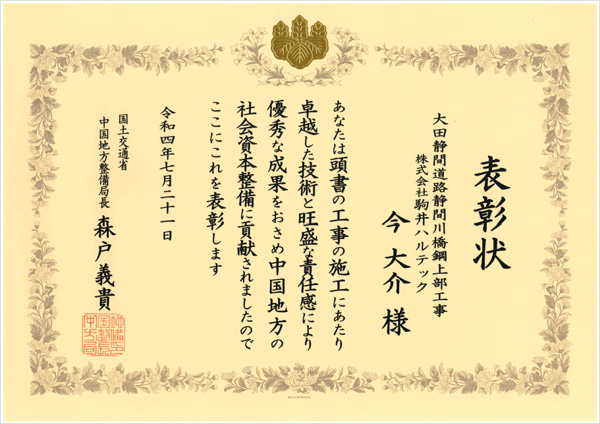 表彰状
大田静間道路静間川橋鋼上部工事
株式会社駒井ハルテック
今大介様
あなたは頭書の工事の施工にあたり
卓越した技術と旺盛な責任感により
優秀な成果をおさめ中国地方の
社会資本整備に貢献されましたので
ここにこれを表彰します
令和四年七月二十一日
国土交通省
中国地方整備局長
森戸義貴